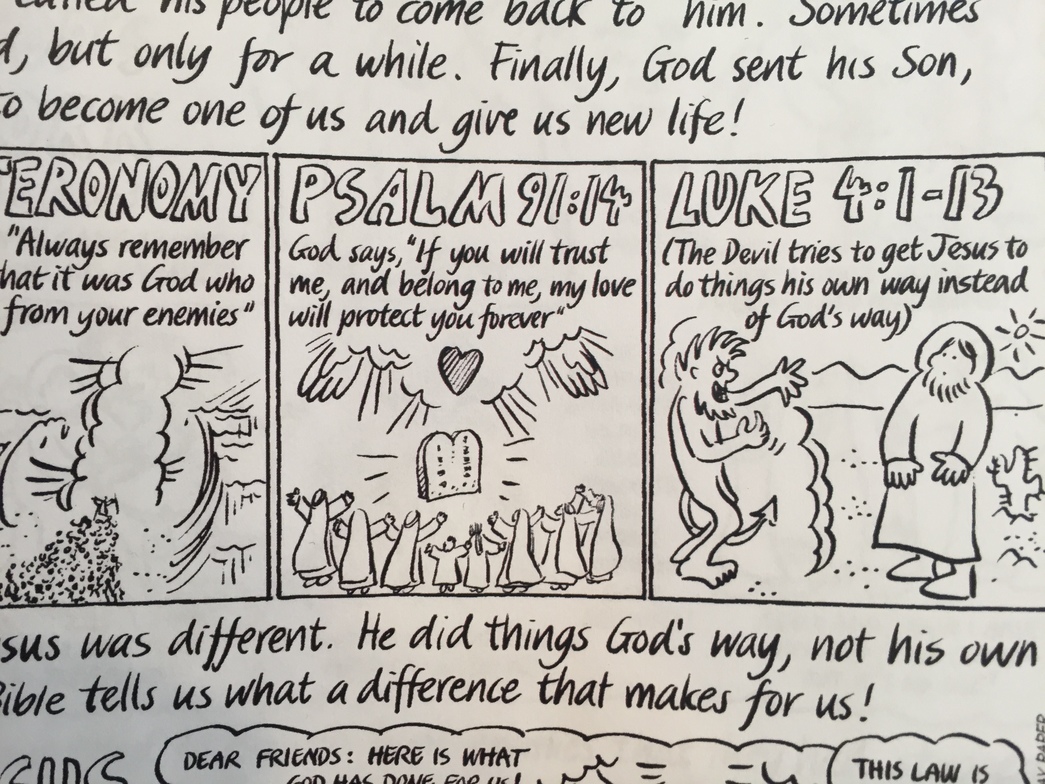 his people to come back to him. Sometimes
but only for a while. Finally, God sent his Son,
to become one of us and give us new life!
ERONOMY
"Always remember
hat it was God who
from your enemies"
PSALM 91:14
God says, "If you will trust
me, and belong to me, my love
will protect you forever"
LUKE 4:1-13
(The Devil tries to get Jesus to
do things his own way instead
of God's way)
sus was different. He did things God's way, not his own
Bible tells us what a difference that makes for us!
DEAR FRIENDS: HERE IS WHAT
GOD HAS DONE FOR US!
THIS LAW IS